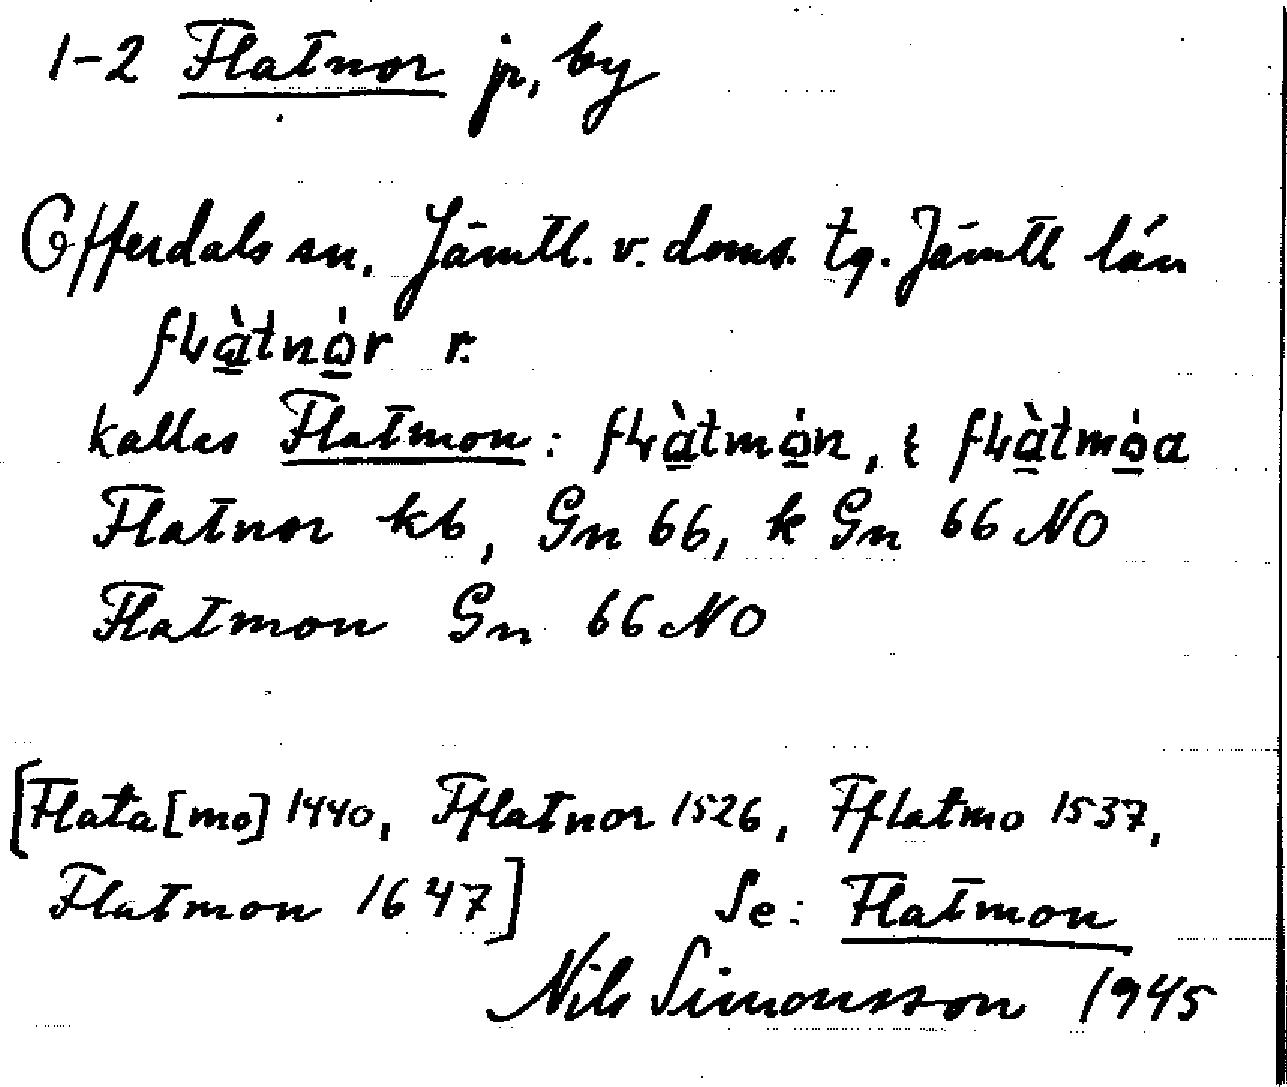 1-2 Flatnor jr, by
Offerdals sn. Jämtl. v. doms. tg. Jämtl län
r.
kallas Flatmon:
Flatnor kb, Gn 66, k Gn 66 NO
Flatmon Gn 66 NO
[Flata[mo] 1440, Fflatnor 1526, Fflatmo 1537,
Flatmon 1647] Se: Flatmon
Nils Simonsson 1945